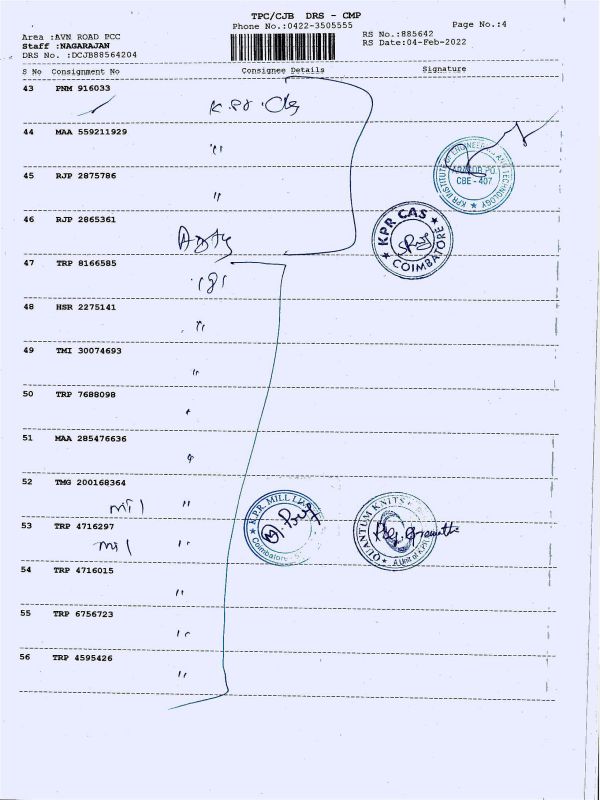 TPC/CJB DRS - CMP
Phone No.:0422-3505555
Page No.:4
Area :AVN ROAD PCC
RS No.:885642
Staff :NAGARAJAN
RS Date:04-Feb-2022
DRS No. :DCJB88564204
S No Consignment No Consignee Details Signature
43 PNM 916033
44 MAA 559211929
"
45 RJP 2875786
"
46 RJP 2865361
47 TRP 8166585
48 HSR 2275141
"
49 TMI 30074693
"
50 TRP 7688098
51 MAA 285476636
52 TMG 200168364
"
53 TRP 4716297
"
54 TRP 4716015
"
55 TRP 6756723
"
56 TRP 4595426
"
KPR INSTITUTE OF ENGINEERING AND TECHNOLOGY
CBE - 407
KPR CAS
COIMBATORE
KPR MILL
Coimbatore
QUANTUM KNITS
A Unit of KPR